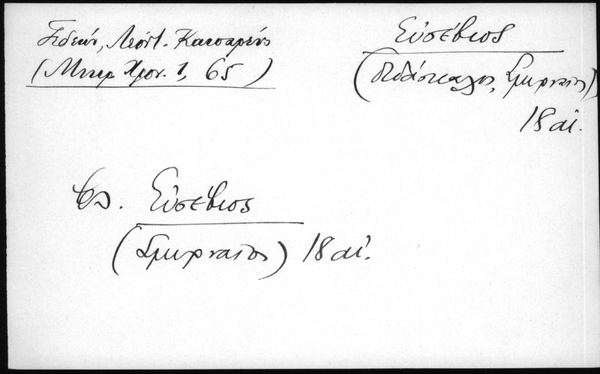 Γεδεών, Λεόντ. Καισαρεύς
(Μικρ. Χρον. 1, 65)
Εὐσέβιος
(διδάσκαλος, Σμυρναῖος)
18 αἰ.
βλ. Εὐσέβιος
(Σμυρναῖος) 18 αἰ.